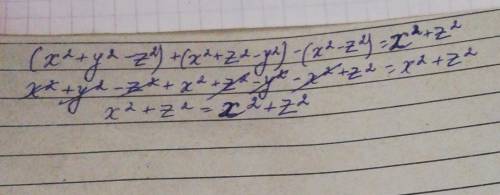 (x²+y²-z²)+(x²+z²-y²)-(x²-z²)=x²+z²
x²+y²-z²+x²+z²-y²-x²+z²=x²+z²
x²+z²=x²+z²